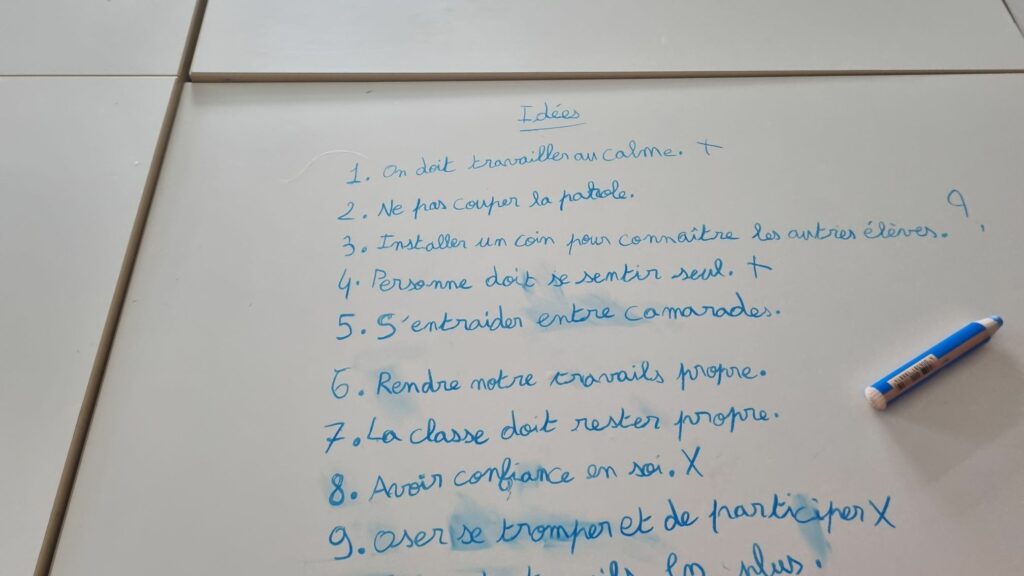 Idées
1. On doit travailler au calme. +
2. Ne pas couper la parole.
3. Installer un coin pour connaître les autres élèves. 9.
4. Personne doit se sentir seul. +
5. S'entraider entre camarades.
6. Rendre notre travails propre.
7. La classe doit rester propre.
8. Avoir confiance en soi. X
9. Oser se tromper et de participer X
travails en plus.